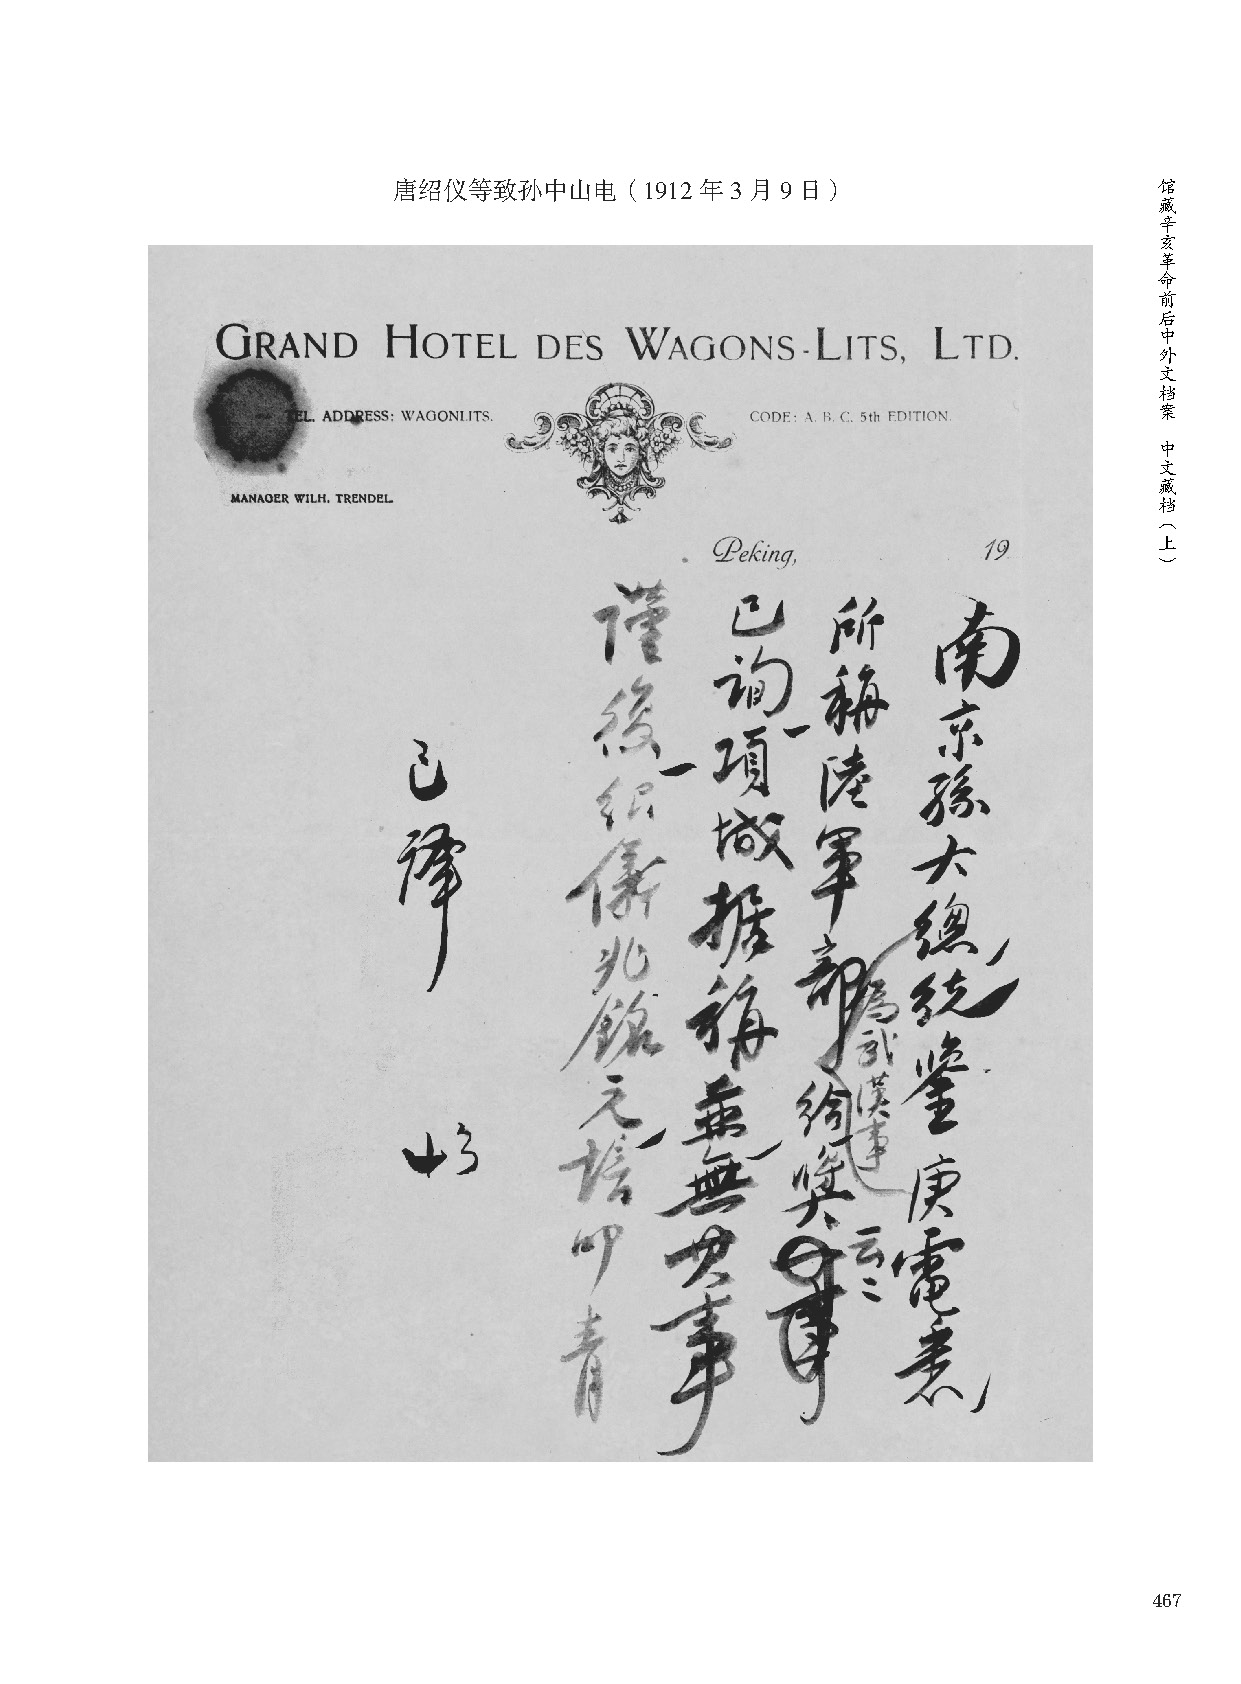 唐绍仪等致孙中山电（1912年3月9日）
馆藏辛亥革命前后中外文档案 中文藏档（上）
GRAND HOTEL DES WAGONS-LITS, LTD.
TEL. ADDRESS: WAGONLITS.
CODE: A. B. C. 5th EDITION.
MANAGER WILH. TRENDEL.
Peking, 19
南京孫大總統鑒庚電悉
所稱陸軍部為武漢事給獎云二
已詢項城據稱並無其事
謹復紹儀兆銘元培叩青
已譯
467